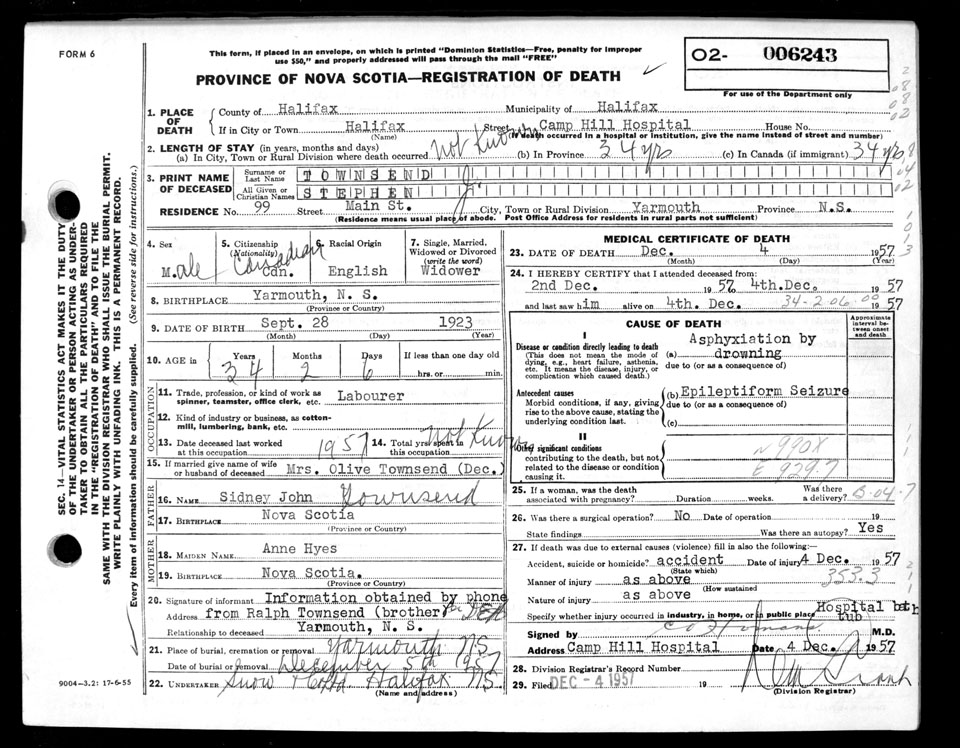 FORM 6
This form, if placed in an envelope, on which is printed "Dominion Statistics—Free, penalty for improper
use $50," and properly addressed will pass through the mail "FREE"
PROVINCE OF NOVA SCOTIA—REGISTRATION OF DEATH
O2- 006243
For use of the Department only
SEC. 14—VITAL STATISTICS ACT MAKES IT THE DUTY
OF THE UNDERTAKER OR PERSON ACTING AS UNDER-
TAKER TO OBTAIN ALL THE PARTICULARS REQUIRED
IN THE "REGISTRATION OF DEATH" AND TO FILE THE
SAME WITH THE DIVISION REGISTRAR WHO SHALL ISSUE THE BURIAL PERMIT.
WRITE PLAINLY WITH UNFADING INK. THIS IS A PERMANENT RECORD.
Every item of information should be carefully supplied. (See reverse side for instructions.)
1. PLACE OF DEATH
County of Halifax Municipality of Halifax
If in City or Town Halifax Street Camp Hill Hospital House No.
(Name) (If death occurred in a hospital or institution, give the name instead of street and number)
2. LENGTH OF STAY (in years, months and days)
(a) In City, Town or Rural Division where death occurred Not Known (b) In Province 34 yrs (c) In Canada (if immigrant) 34 yrs
3. PRINT NAME OF DECEASED
Surname or Last Name TOWNSEND
All Given or Christian Names STEPHEN J.
RESIDENCE No. 99 Street Main St. City, Town or Rural Division Yarmouth Province N.S.
(Residence means usual place of abode. Post Office Address for residents in rural parts not sufficient)
4. Sex Male
5. Citizenship (Nationality) Canadian Cdn.
6. Racial Origin English
7. Single, Married, Widowed or Divorced (write the word) Widower
8. BIRTHPLACE Yarmouth, N. S.
(Province or Country)
9. DATE OF BIRTH Sept. 28 1923
(Month) (Day) (Year)
10. AGE in Years 34 Months 2 Days 6 If less than one day old
hrs. or min.
OCCUPATION
11. Trade, profession, or kind of work as
spinner, teamster, office clerk, etc. Labourer
12. Kind of industry or business, as cotton-
mill, lumbering, bank, etc.
13. Date deceased last worked
at this occupation 1957
14. Total yrs. spent in
this occupation Not Known
15. If married give name of wife
or husband of deceased Mrs. Olive Townsend (Dec.)
FATHER
16. NAME Sidney John Townsend
17. BIRTHPLACE Nova Scotia
(Province or Country)
MOTHER
18. MAIDEN NAME Anne Hyes
19. BIRTHPLACE Nova Scotia.
(Province or Country)
20. Signature of informant Information obtained by phone
Address from Ralph Townsend (brother)
Relationship to deceased Yarmouth, N. S.
21. Place of burial, cremation or removal Yarmouth NS
Date of burial or removal December 5th 1957
22. UNDERTAKER Snow & Co Ltd. Halifax NS.
(Name and address)
9004-3.2: 17-6-55
MEDICAL CERTIFICATE OF DEATH
23. DATE OF DEATH Dec. 4 1957
(Month) (Day) (Year)
24. I HEREBY CERTIFY that I attended deceased from:
2nd Dec. 1957 4th.Dec. 1957
and last saw him alive on 4th. Dec. 1957
34-206.00
CAUSE OF DEATH
Approximate interval between onset and death
I
Disease or condition directly leading to death
(This does not mean the mode of
dying, e.g., heart failure, asthenia,
etc. It means the disease, injury, or
complication which caused death.)
(a) Asphyxiation by drowning
due to (or as a consequence of)
Antecedent causes
Morbid conditions, if any, giving
rise to the above cause, stating the
underlying condition last.
(b) Epileptiform Seizure
due to (or as a consequence of)
(c)
II
Other significant conditions
contributing to the death, but not
related to the disease or condition
causing it.
N990X
E929.7
25. If a woman, was the death
associated with pregnancy? Duration weeks. Was there a delivery?
26. Was there a surgical operation? No Date of operation 19
State findings Was there an autopsy? Yes
27. If death was due to external causes (violence) fill in also the following:
Accident, suicide or homicide? accident Date of injury 4 Dec. 1957
(State which)
353.3
Manner of injury as above
(How sustained)
Nature of injury as above
Specify whether injury occurred in industry, in home, or in public place Hospital bath tub
Signed by M.D.
Address Camp Hill Hospital Date 4 Dec. 1957
28. Division Registrar's Record Number
29. Filed DEC - 4 1957 19
(Division Registrar)